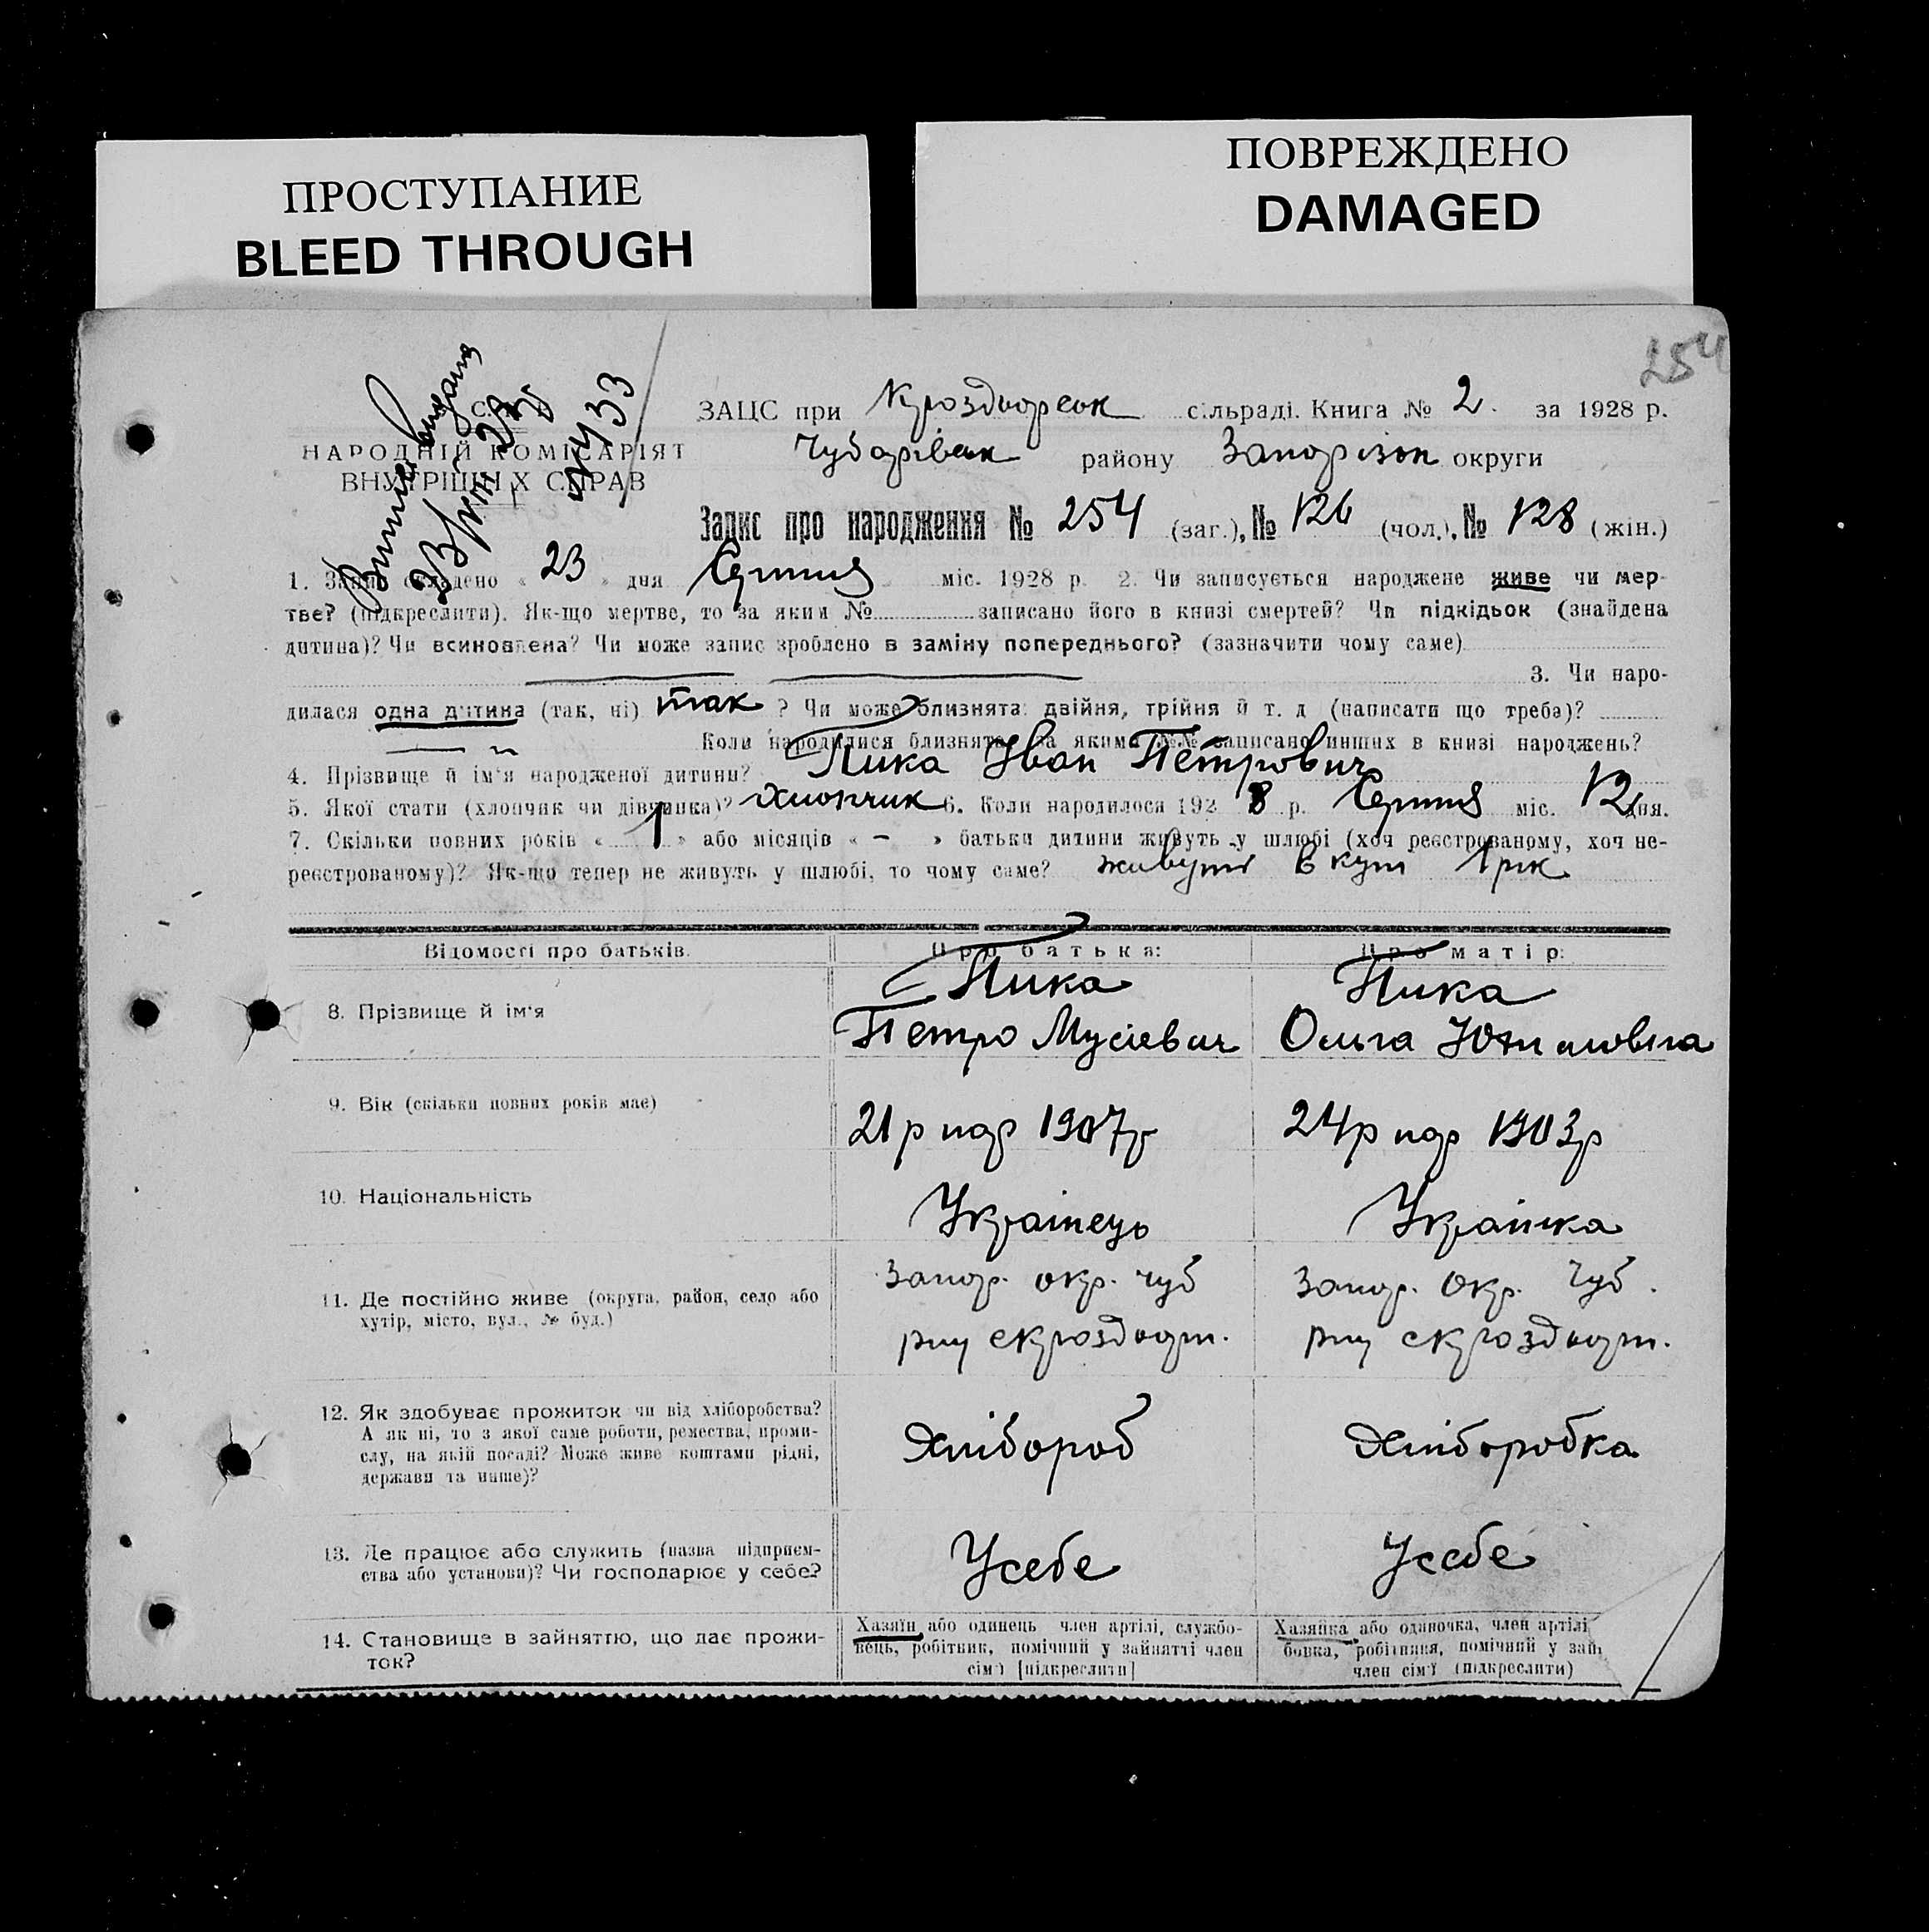 ПРОСТУПАНИЕ
BLEED THROUGH
ПОВРЕЖДЕНО
DAMAGED
254
НАРОДНІЙ КОМІСАРІЯТ
ВНУТРІШНІХ СПРАВ
ЗАЦС при Кроздворськ сільраді. Книга № 2. за 1928 р.
Чубарівськ району Запорізьк округи
Запис про народження № 254 (заг.), № 126 (чол.), № 128 (жін.)
1. Запис складено « 23 » дня Серпня міс. 1928 р. 2. Чи записується народжене живе чи мер-
тве? (підкреслити). Як-що мертве, то за яким № записано його в книзі смертей? Чи підкідьок (знайдена
дитина)? Чи всиновлена? Чи може запис зроблено в заміну попереднього? (зазначити чому саме)
3. Чи наро-
дилася одна дитина (так, ні) так ? Чи може близнята: двійня, трійня й т. д (написати що треба)?
Коли народилися близнята, за якими №№ записано инших в книзі народжень?
4. Прізвище й ім'я народженої дитини? Пика Іван Петрович
5. Якої стати (хлопчик чи дівчинка)? Хлопчик 6. Коли народилося 192 8 р. Серпня міс. 12 дня.
7. Скільки повних років « 1 » або місяців « – » батьки дитини живуть у шлюбі (хоч реєстрованому, хоч не-
реєстрованому)? Як-що тепер не живуть у шлюбі, то чому саме? живуть в куп 1 рік
Відомості про батьків. Про батька: Про матір:
8. Прізвище й ім'я
Пика Пика
Петро Мусієвич Ольга
9. Вік (скільки повних років має)
21 р нар 1907 р 24 р нар 1903 р
10. Національність
Українець Українка
11. Де постійно живе (округа, район, село або
хутір, місто, вул., № буд.)
Запор. окр. чуб Запор. окр. Чуб.
рну скроздворт. рну скроздворт.
12. Як здобуває прожиток чи від хліборобства?
А як ні, то з якої саме роботи, ремества, проми-
слу, на якій посаді? Може живе коштами рідні,
держави та инше)?
Хлібороб Хліборобка
13. Де працює або служить (назва підприєм-
ства або установи)? Чи господарює у себе?
Усебе Усебе
14. Становище в зайняттю, що дає прожи-
ток?
Хазяїн або одинець член артілі, службо-
вець, робітник, помічний у зайнятті член
сім'ї [підкреслити]
Хазяйка або одиночка, член артілі
бовка, робітниця, помічний у зай
член сім'ї (підкреслити)